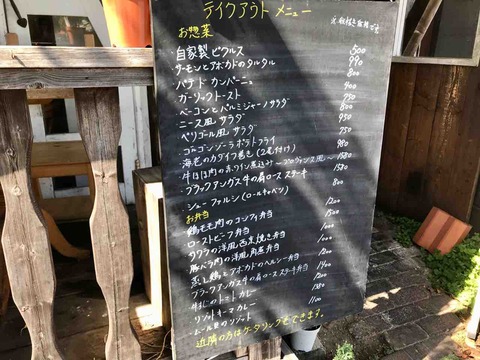 テイクアウト メニュー ※税抜き価格です
お惣菜
・自家製ピクルス 500
・サーモンとアボカドのタルタル 990
・パテドカンパーニュ 800
・ガーリックトースト 400
・ベーコンとパルミジャーノサラダ 750
・ニース風サラダ 800
・ペリゴール風サラダ 950
・ゴルゴンゾーラポテトフライ 750
・海老のカダイフ巻き(2尾付け) 980
・牛ほほ肉の赤ワイン煮込み 1580
・ブラックアンガス牛の肩ロースステーキ 1580
・シューファルシ(ロールキャベツ) 800
お弁当
・鶏もも肉のコンフィ弁当 1200
・ローストビーフ弁当 1500
・サワラの洋風西京焼き弁当 1000
・豚バラ肉の洋風角煮弁当 1000
・蒸し鶏とアボカドのヘルシー弁当 1200
・ブラックアンガス牛の肩ロースステーキ弁当 1400
・牛すじのトマトカレー 1200
・キーマカレー
・ムール貝のリゾット 1100
近隣の方はケータリングもできます。